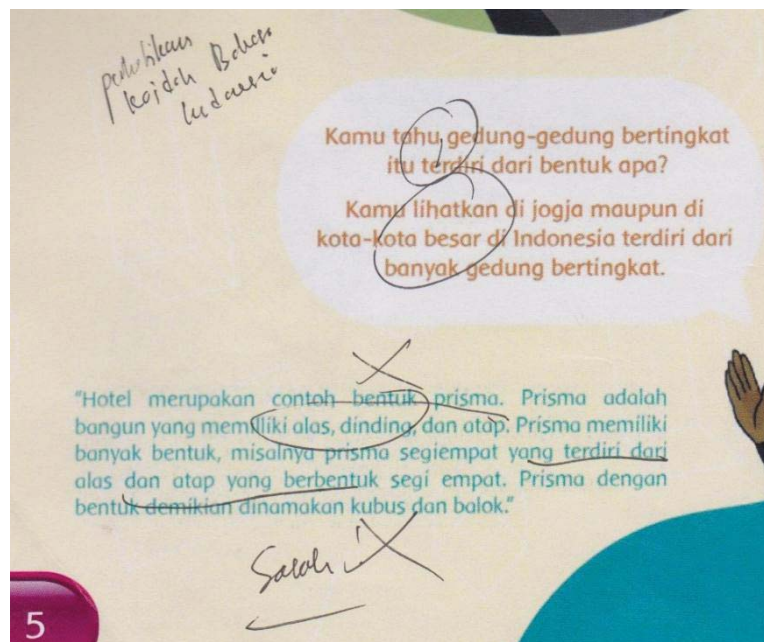 perhatikan
kaidah Bahasa
Indonesia
Kamu tahu gedung-gedung bertingkat
itu terdiri dari bentuk apa?
Kamu lihatkan di jogja maupun di
kota-kota besar di Indonesia terdiri dari
banyak gedung bertingkat.
"Hotel merupakan contoh bentuk prisma. Prisma adalah
bangun yang memiliki alas, dinding, dan atap. Prisma memiliki
banyak bentuk, misalnya prisma segiempat yang terdiri dari
alas dan atap yang berbentuk segi empat. Prisma dengan
bentuk demikian dinamakan kubus dan balok."
Salah!
5